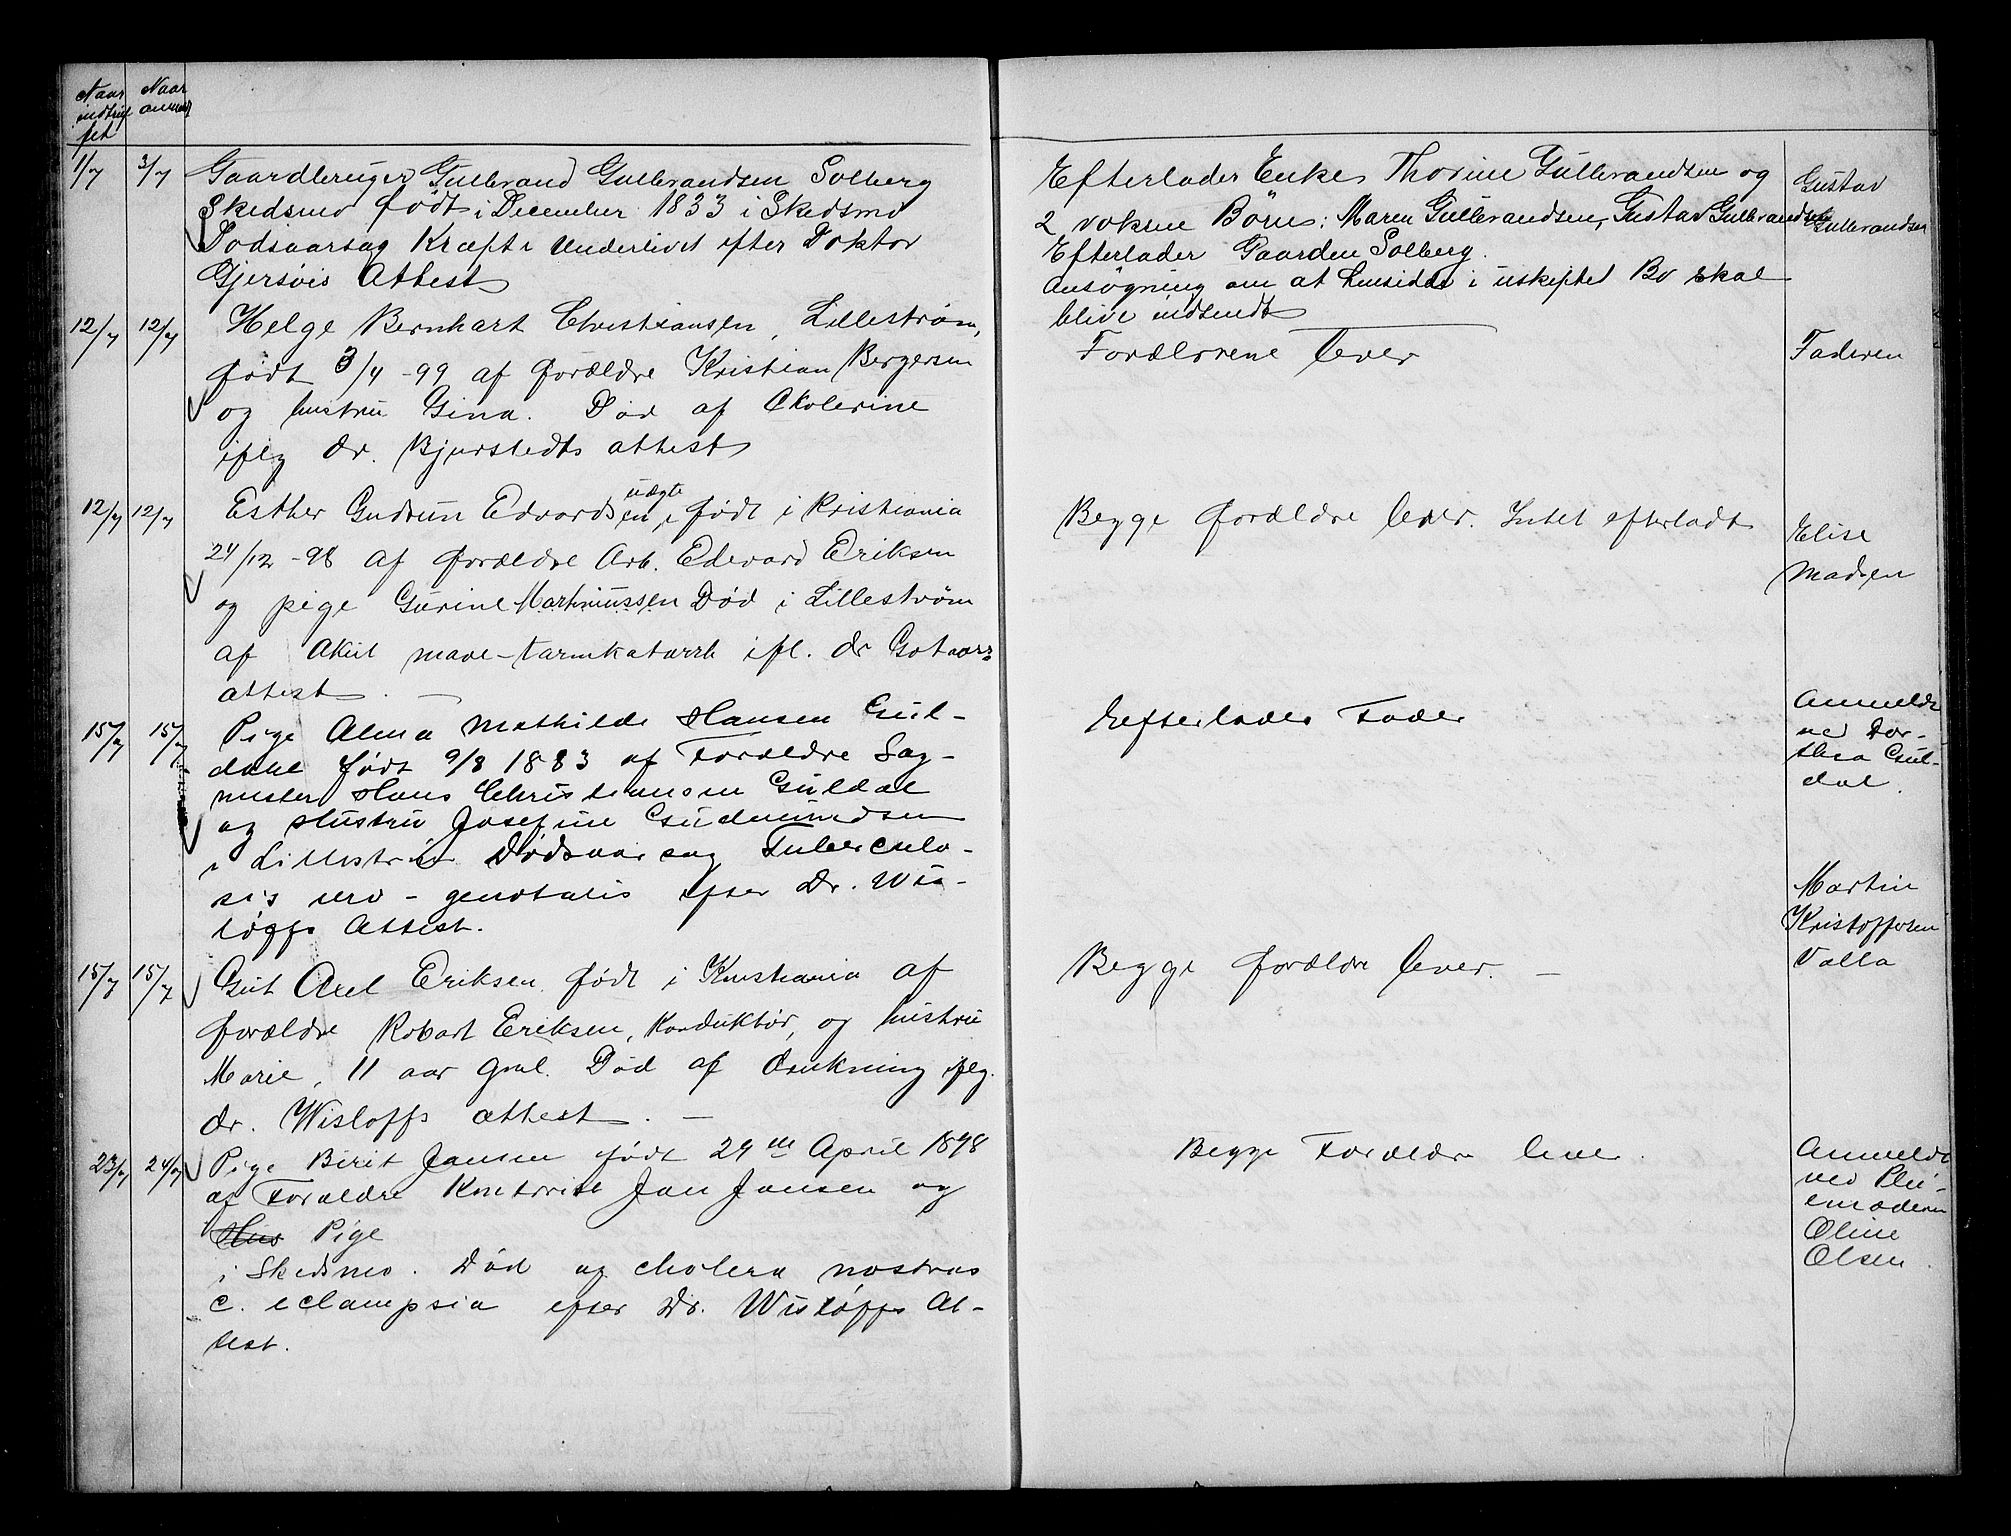 Naar indtruf- fet
Naar anmeldt
1/7 3/7 Gaardbruger Gulbrand Gulbrandsen Solberg
Skedsmo født i December 1833 i Skedsmo
Dødsaarsag Kræft i Underlivet efter Doktor
Gjersøes Attest
Efterlader Enke Thorine Gulbrandsen og
2 voksne Börn: Maren Gulbrandsen, Gustav Gulbrandsen
Efterlader Gaarden Solberg.
Ansøgning om at hensidde i uskiftet Bo skal
blive indsendt
Gustav
Gulbrandsen
12/7 12/7 Helge Bernhart Christiansen, Lillestrøm,
født 3/4 -99 af forældre Kristian Bergersen
og hustru Gina. Død af Cholerine
iflg dr. Bjurstedts attest
Forældrene lever
Faderen
12/7 12/7 Esther Gudrun Edvardsen, uægte født i Kristiania
24/12 -98 af forældre Arb. Edevard Eriksen
og pige Gurine Martinussen Død i Lillestrøm
af akut mave-tarmkatarrh ifl. dr Gotaars
attest. —
Begge forældre lever. Intet efterladt
Elise
Madsen
15/7 15/7 Pige Alma Mathilde Hansen Gul-
dahl født 9/8 1883 af Forældre Sag-
mester Hans Christiansen Guldal
og Hustru Josefine Gudmundsen
i Lillestrøm Dødsaarsag Tuberculo-
sis uro-genotalis efter Dr. Wis-
løffs Attest.
Efterlader Fader
Anmeldt
ved Dor-
thea Gul-
dal.
15/7 15/7 Gut Axel Eriksen, født i Kristiania af
forældre Robart Eriksen, Konduktör, og hustru
Marie, 11 aar gml. Død af drukning iflg.
dr. Wisløffs attest. —
Begge forældre lever. —
Martin
Kristoffersen
Valla
23/7 24/7 Pige Birit Jansen født 29de April 1898
af Forældre Kontorist Jan Jansen og
Hus Pige
i Skedsmo. Død af cholera nostras
c. eclampsia efter Dr. Wisløffs At-
test.
Begge Forældre lever.
Anmeldt
ved Plei-
emoderen
Oline
Olsen.